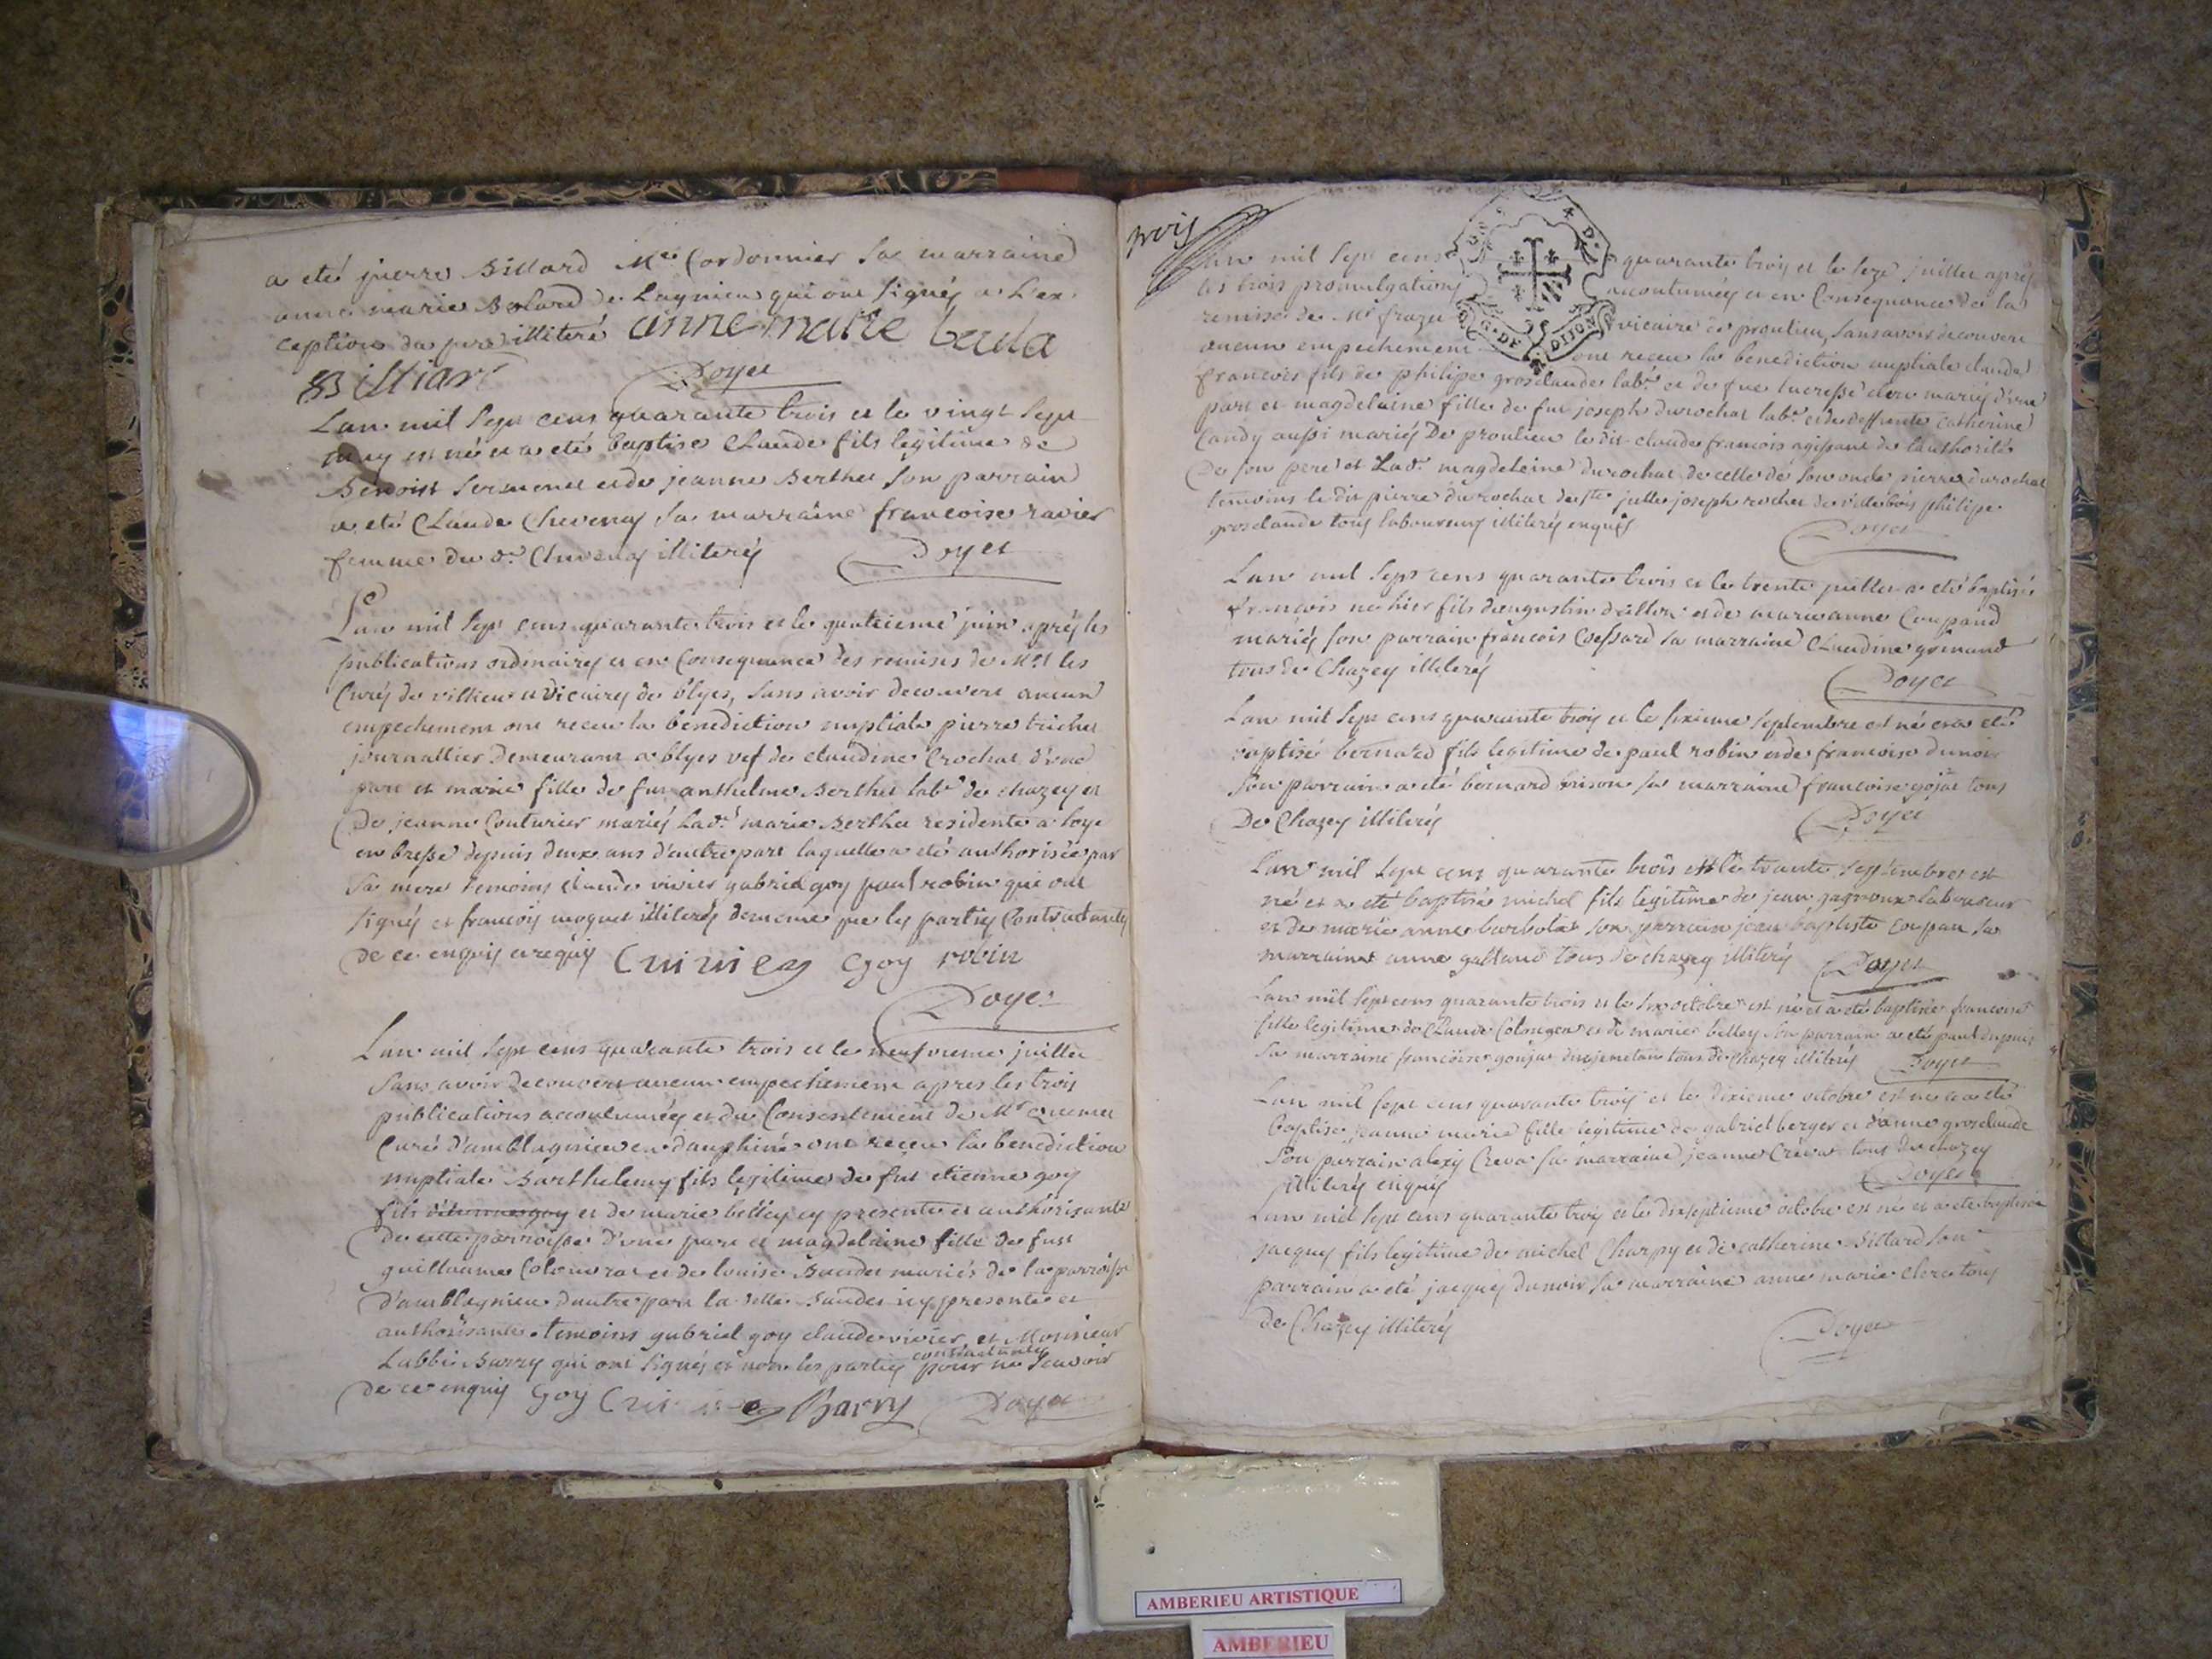 a eté pierre Billard Me Cordonnier sa marraine
anne marie Bolard de Lagnieu qui ont signés a L'ex
ception du pere illiteré anne marie
Billiar Doyer
Lan mil sept cens quarante trois et le vingt sept
may est né et a eté baptise Claude fils legitime de
Benoist et de jeanne Berthet son parrain
a eté Claude Chevenay sa marraine francoise ravier
femme du dt Chevenay illiterés Doyer
Lan mil sept cens quarante trois et le juin aprés les
publications ordinaires et en Consequance des remises de Mrs les
Curés de villieu et vicaires de blyes, sans avoir decouvert aucun
empechement ont receu la benediction nuptiale pierre trichet
journallier demeurant a blyes vef de claudine Crochat d'une
part et marie fille de fut anthelme Berthet labr de chazey et
De jeanne Couturier mariés Lade marie Berthet residente a loye
en bresse depuis deux ans d'autre part laquelle a eté authorisée par
sa mere temoins claude vivier gabriel goy paul robin qui ont
signés et francois moquet illiterés de meme que les parties Contractantes
de ce enquis et requis C vivier Goy robin
Doyer
Lan mil sept cens quarante trois et le juillet
sans avoir decouvert aucun empechement apres les trois
publications accoutumées et du Consentement de Mr
Curé d'amblagnieu en dauphiné ont receu la benediction
nuptiale Barthelemy fils legitime de fut etienne goy
fils d'etienne goy et de marie belley cy presente et authorisante
De cette parroisse d'une part et magdelaine fille de fut
guillaume et de louise Baudet mariés de la parroisse
D'amblagnieu d'autre part la ditte Baudet icy presente et
authorisante temoins gabriel goy claude vivier et Monsieur
Labbé Barry qui ont signés et non les parties contractantes pour ne scavoir
de ce enquis Goy C vivier Barry Doyer
trois
Lan mil sept cens quarante trois et le seze juillet aprés
les trois promulgations accoutumées et en Consequance de la
G. DE DIJON
remise de Mr vicaire de proulieu, sans avoir decouvert
aucun empechement ont receu la benediction nuptiale claude
francois fils de philipe grosclaude labr et de fue lucresse clerc mariés d'une
part et magdelaine fille de fut joseph durochat labr et de deffunte catherine
Candy aussi mariés De proulieu le dit claude francois agissant de l'authorité
De son pere et Lade magdeleine durochat de celle de son oncle pierre durochat
temoins le dit pierre durochat de ste julle joseph rochet de villebois philipe
grosclaude tous laboureurs illiterés enquis
Doyer
Lan mil sept cens quarante trois et le trente juillet a eté baptisé
francois né hier fils d'augustin et de marieanne Coupand
mariés son parrain francois sa marraine Claudine
tous de Chazey illiterés
Doyer
Lan mil sept cens quarante trois et le sixieme septembre est né et a eté
baptisé bernard fils legitime de paul robin et de francoise dunoir
son parrain a eté bernard brison sa marraine francoise gojat tous
De Chazey illiterés Doyer
Lan mil sept cens quarante trois et le trante septembre est
né et a eté baptisé michel fils legitime de jean laboureur
et de marie anne barbolat son parrain jean baptiste coupan sa
marraine anne galland tous de chazey illiterés Doyer
Lan mil sept cens quarante trois et le six octobre est né et a eté baptisée francoise
fille legitime de Claude et de marie belley son parrain a eté paul dupuis
sa marraine francoise goujat tous de Chazey illiterés Doyer
Lan mil sept cens quarante trois et le dixieme octobre est né et a eté
baptise jeanne marie fille legitime de gabriel berger et d'anne grosclaude
son parrain alexis Creva sa marraine jeanne Creva tous de chazey
illiterés enquis Doyer
Lan mil sept cens quarante trois et le dixseptieme octobre est né et a eté baptisé
jacques fils legitime de michel Charpy et de catherine Billard son
parrain a eté jacques dunoir sa marraine anne marie clerc tous
de Chazey illiterés
Doyer
AMBERIEU ARTISTIQUE
AMBERIEU